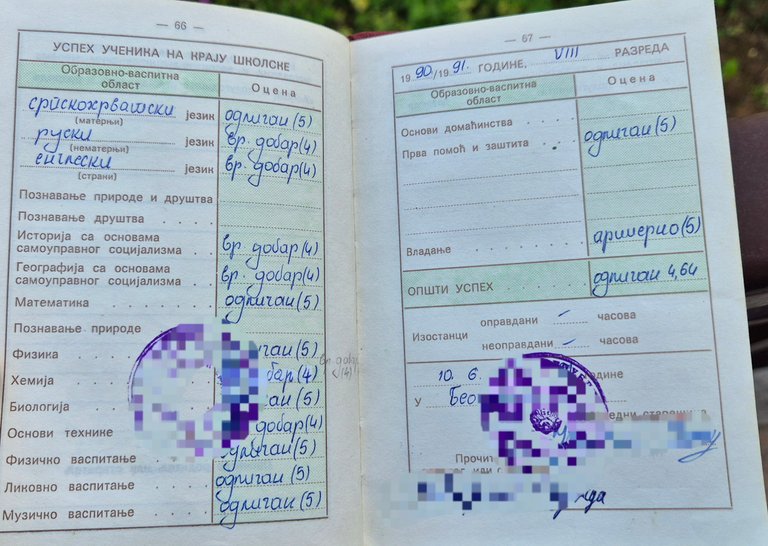 — 66 —
УСПЕХ УЧЕНИКА НА КРАЈУ ШКОЛСКЕ
Образовно-васпитна област Оцена
српскохрватски језик одличан (5)
(матерњи)
руски језик вр. добар (4)
(нематерњи)
енглески језик вр. добар (4)
(страни)
Познавање природе и друштва
Познавање друштва
Историја са основама
самоуправног социјализма вр. добар (4)
Географија са основама
самоуправног социјализма вр. добар (4)
Математика одличан (5)
Познавање природе
Физика (5)
Хемија (4)
Биологија (5)
Основи технике добар (4)
Физичко васпитање одличан (5)
Ликовно васпитање одличан (5)
Музичко васпитање одличан (5)
— 67 —
1990/1991. ГОДИНЕ, VIII РАЗРЕДА
Образовно-васпитна област Оцена
Основи домаћинства
Прва помоћ и заштита одличан (5)
Владање примерно (5)
ОПШТИ УСПЕХ одличан 4,64
Изостанци оправдани — часова
неоправдани — часова
10. 6.
У